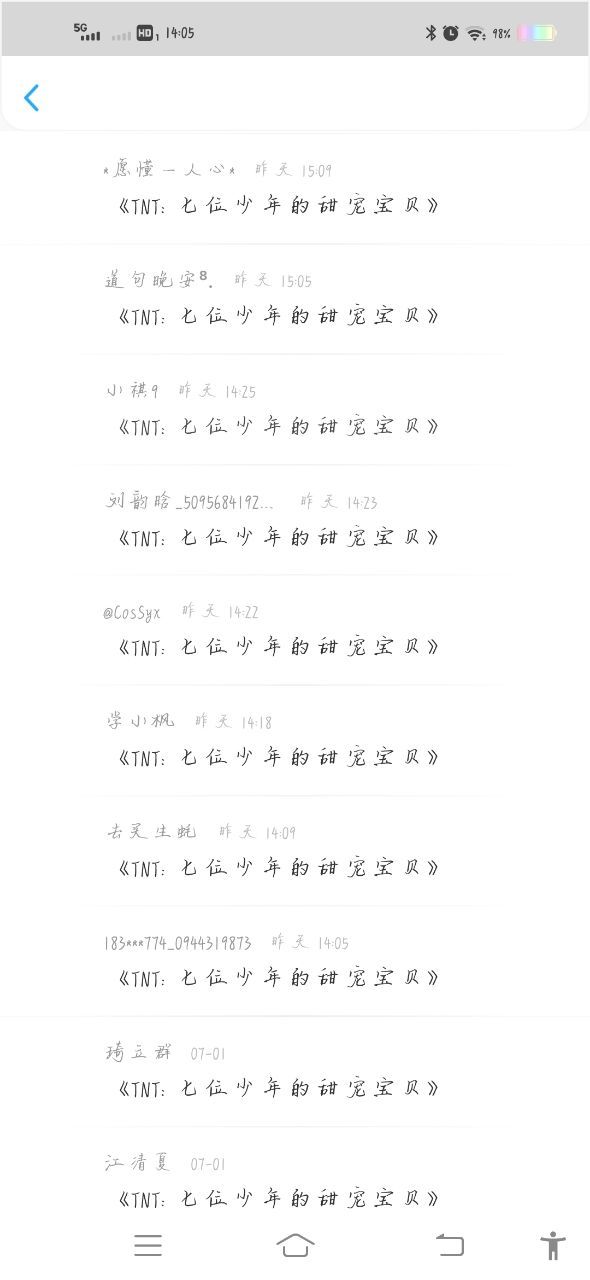 5G HD 1 14:05 98%
*愿懂一人心* 昨天 15:09
《TNT: 七位少年的甜宠宝贝》
道句晚安⁸. 昨天 15:05
《TNT: 七位少年的甜宠宝贝》
小祺9 昨天 14:25
《TNT: 七位少年的甜宠宝贝》
刘韵晗_5095684192... 昨天 14:23
《TNT: 七位少年的甜宠宝贝》
@CosSyx 昨天 14:22
《TNT: 七位少年的甜宠宝贝》
学小枫 昨天 14:18
《TNT: 七位少年的甜宠宝贝》
去关生蚝 昨天 14:09
《TNT: 七位少年的甜宠宝贝》
183***774_0944319873 昨天 14:05
《TNT: 七位少年的甜宠宝贝》
琦立群 07-01
《TNT: 七位少年的甜宠宝贝》
江清夏 07-01
《TNT: 七位少年的甜宠宝贝》